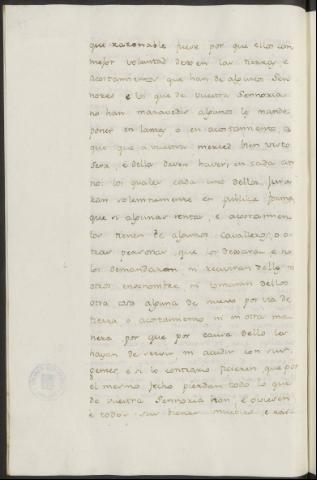 que razonable fuere por que ellos con
mejor voluntad dexen las tierras, e
acostamientos que han de algunos Sen
nores e los que de vuestra Sennoria
no han maravedis algunos lo mande
poner en lanzas o en acostamiento, a
que a vuestra merced bien visto
sera, e dello deven haver, en cada an
no: los quales cada uno dellos, jura
ran solemnemente en publica forma
que si algunas rentas, e acostamien
tos tienen de algunos cavalleros, o o
tras personas que los dexaran e no
los demandaran, ni reciviran dello ni
otros, ni tomaran dellos
otra cosa alguna de nuevo por via de
tierra, o acostamiento, ni en otra ma
nera por que por causa dello les
hayan de servir, ni acudir con sus
gentes, e si lo contrario ficieren que por
el mesmo fecho pierdan todo lo que
de vuestra Sennoria han, e ovieren
e todos sus bienes muebles, e rai